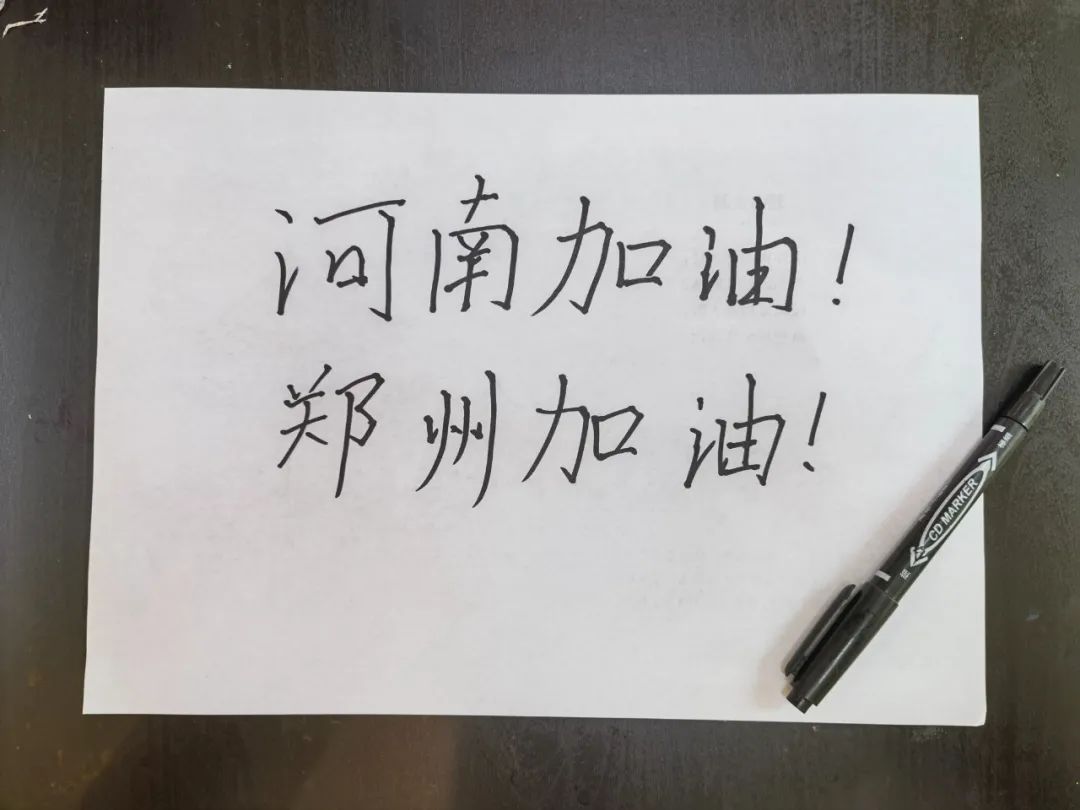 河南加油！
郑州加油！
CD MARKER